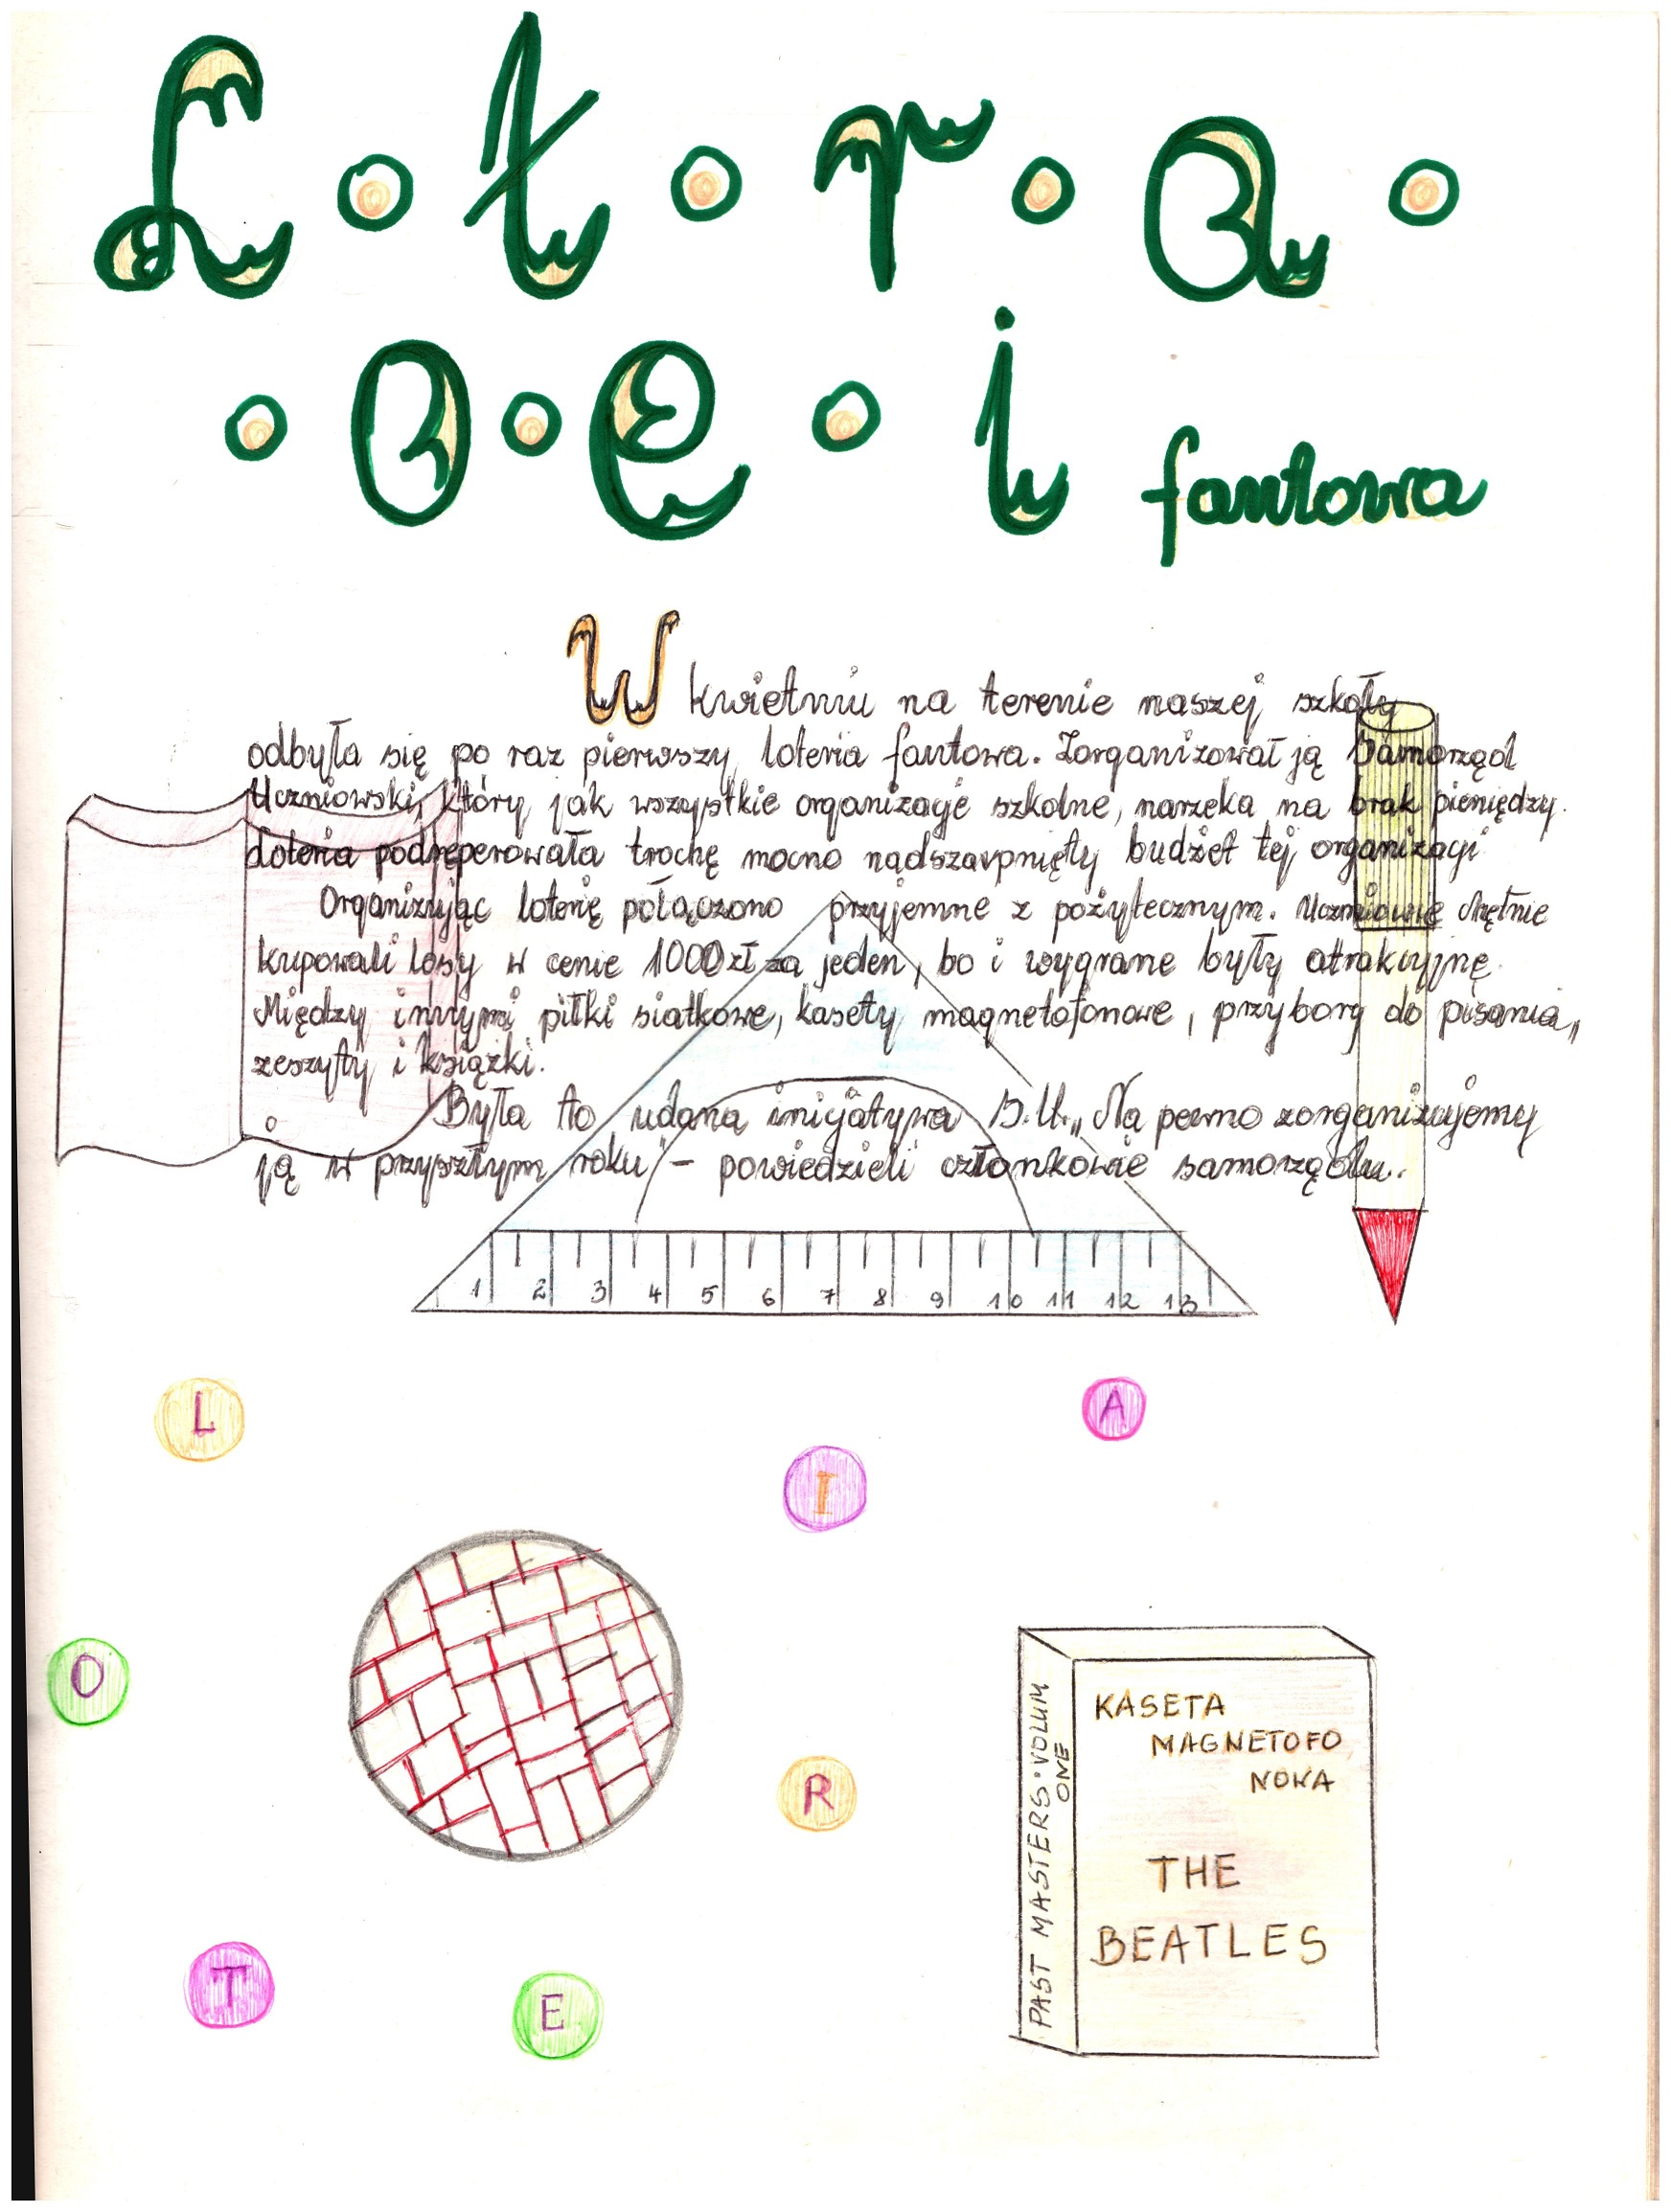 L o t o r o a o
o o o e o i fantowa
W kwietniu na terenie naszej szkoły
odbyła się po raz pierwszy loteria fantowa. Zorganizował ją Samorząd
Uczniowski, który jak wszystkie organizacje szkolne, narzeka na brak pieniędzy.
Loteria podreperowała trochę mocno nadszarpnięty budżet tej organizacji
Organizując loterię połączono przyjemne z pożytecznym. Uczniowie chętnie
kupowali losy w cenie 1000 zł za jeden, bo i wygrane były atrakcyjne.
Między innymi piłki siatkowe, kasety magnetofonowe, przybory do pisania,
zeszyty i książki.
Była to udana inicjatywa S.U. „Na pewno zorganizujemy
ją w przyszłym roku" - powiedzieli członkowie samorządu.
1 2 3 4 5 6 7 8 9 10 11 12 13
L
A
I
O
R
T
E
KASETA
MAGNETOFO
NOWA
THE
BEATLES
PAST MASTERS·VOLUM
ONE